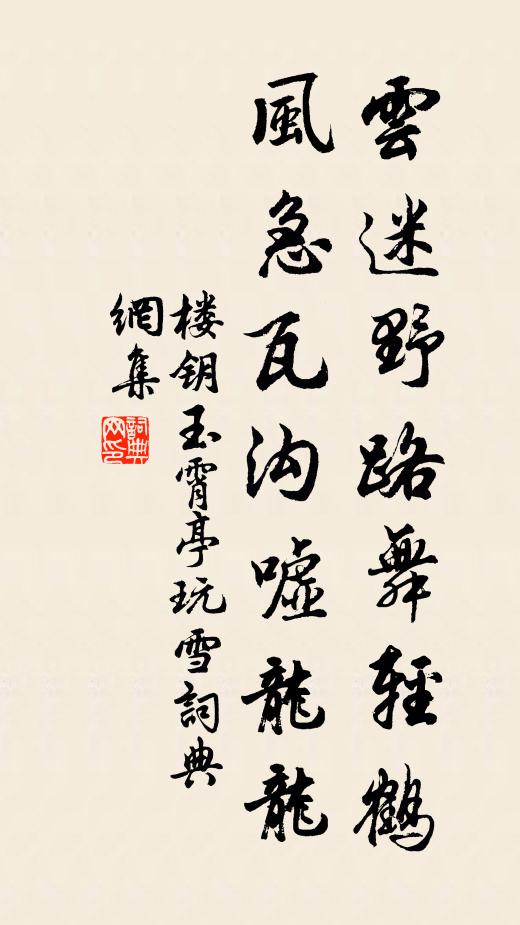 雲迷野路舞輕鶴
風急瓦沟噓龍龍
楼钥玉霄亭玩雪詞典
網集
詞典
网印